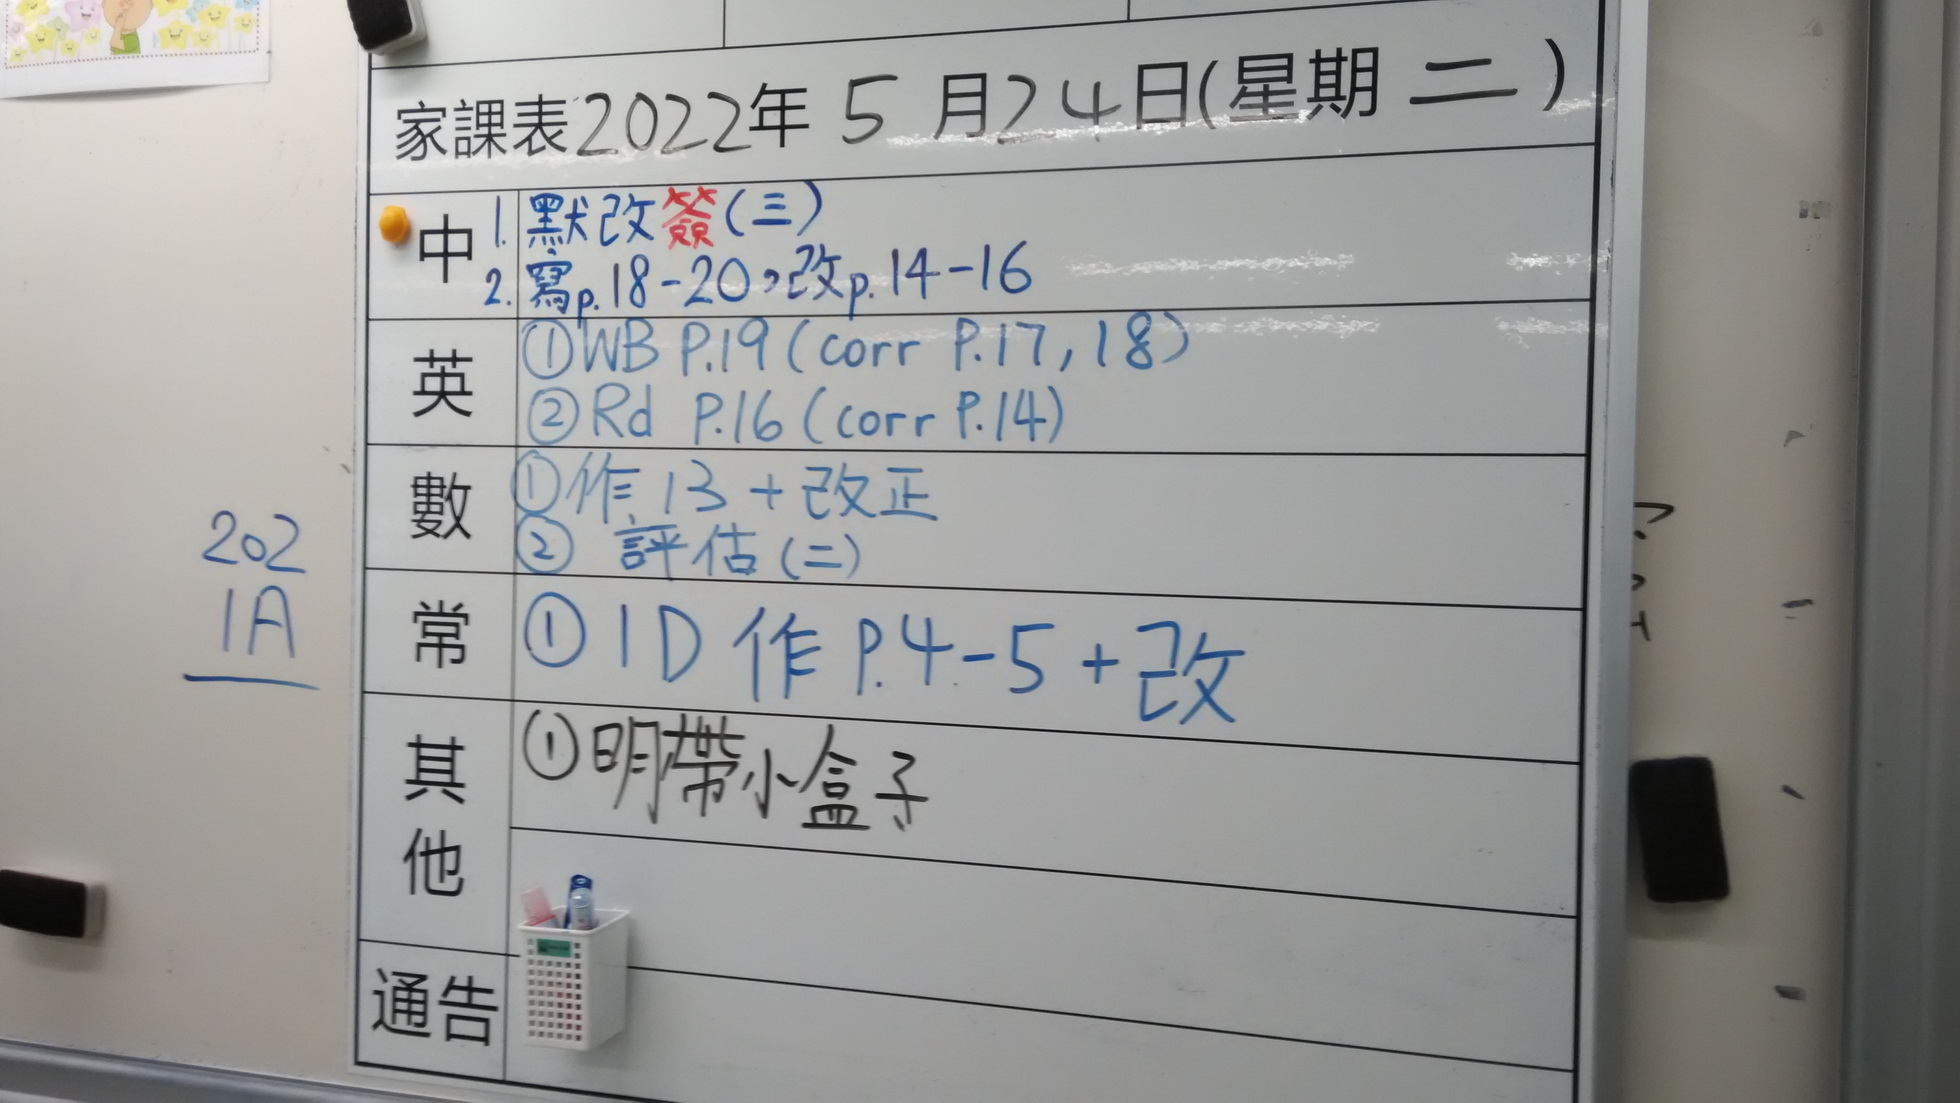 家課表2022年 5 月24日(星期 二 )
中 1. 默改簽(三)
2. 寫p.18-20,改p.14-16
英 ①WB P.19 (corr P.17, 18)
②Rd P.16 (corr P.14)
數 ①作13 + 改正
② 評估(二)
常 ①1D 作 P.4-5 + 改
其他 ①明帶小盒子
通告
202
1A